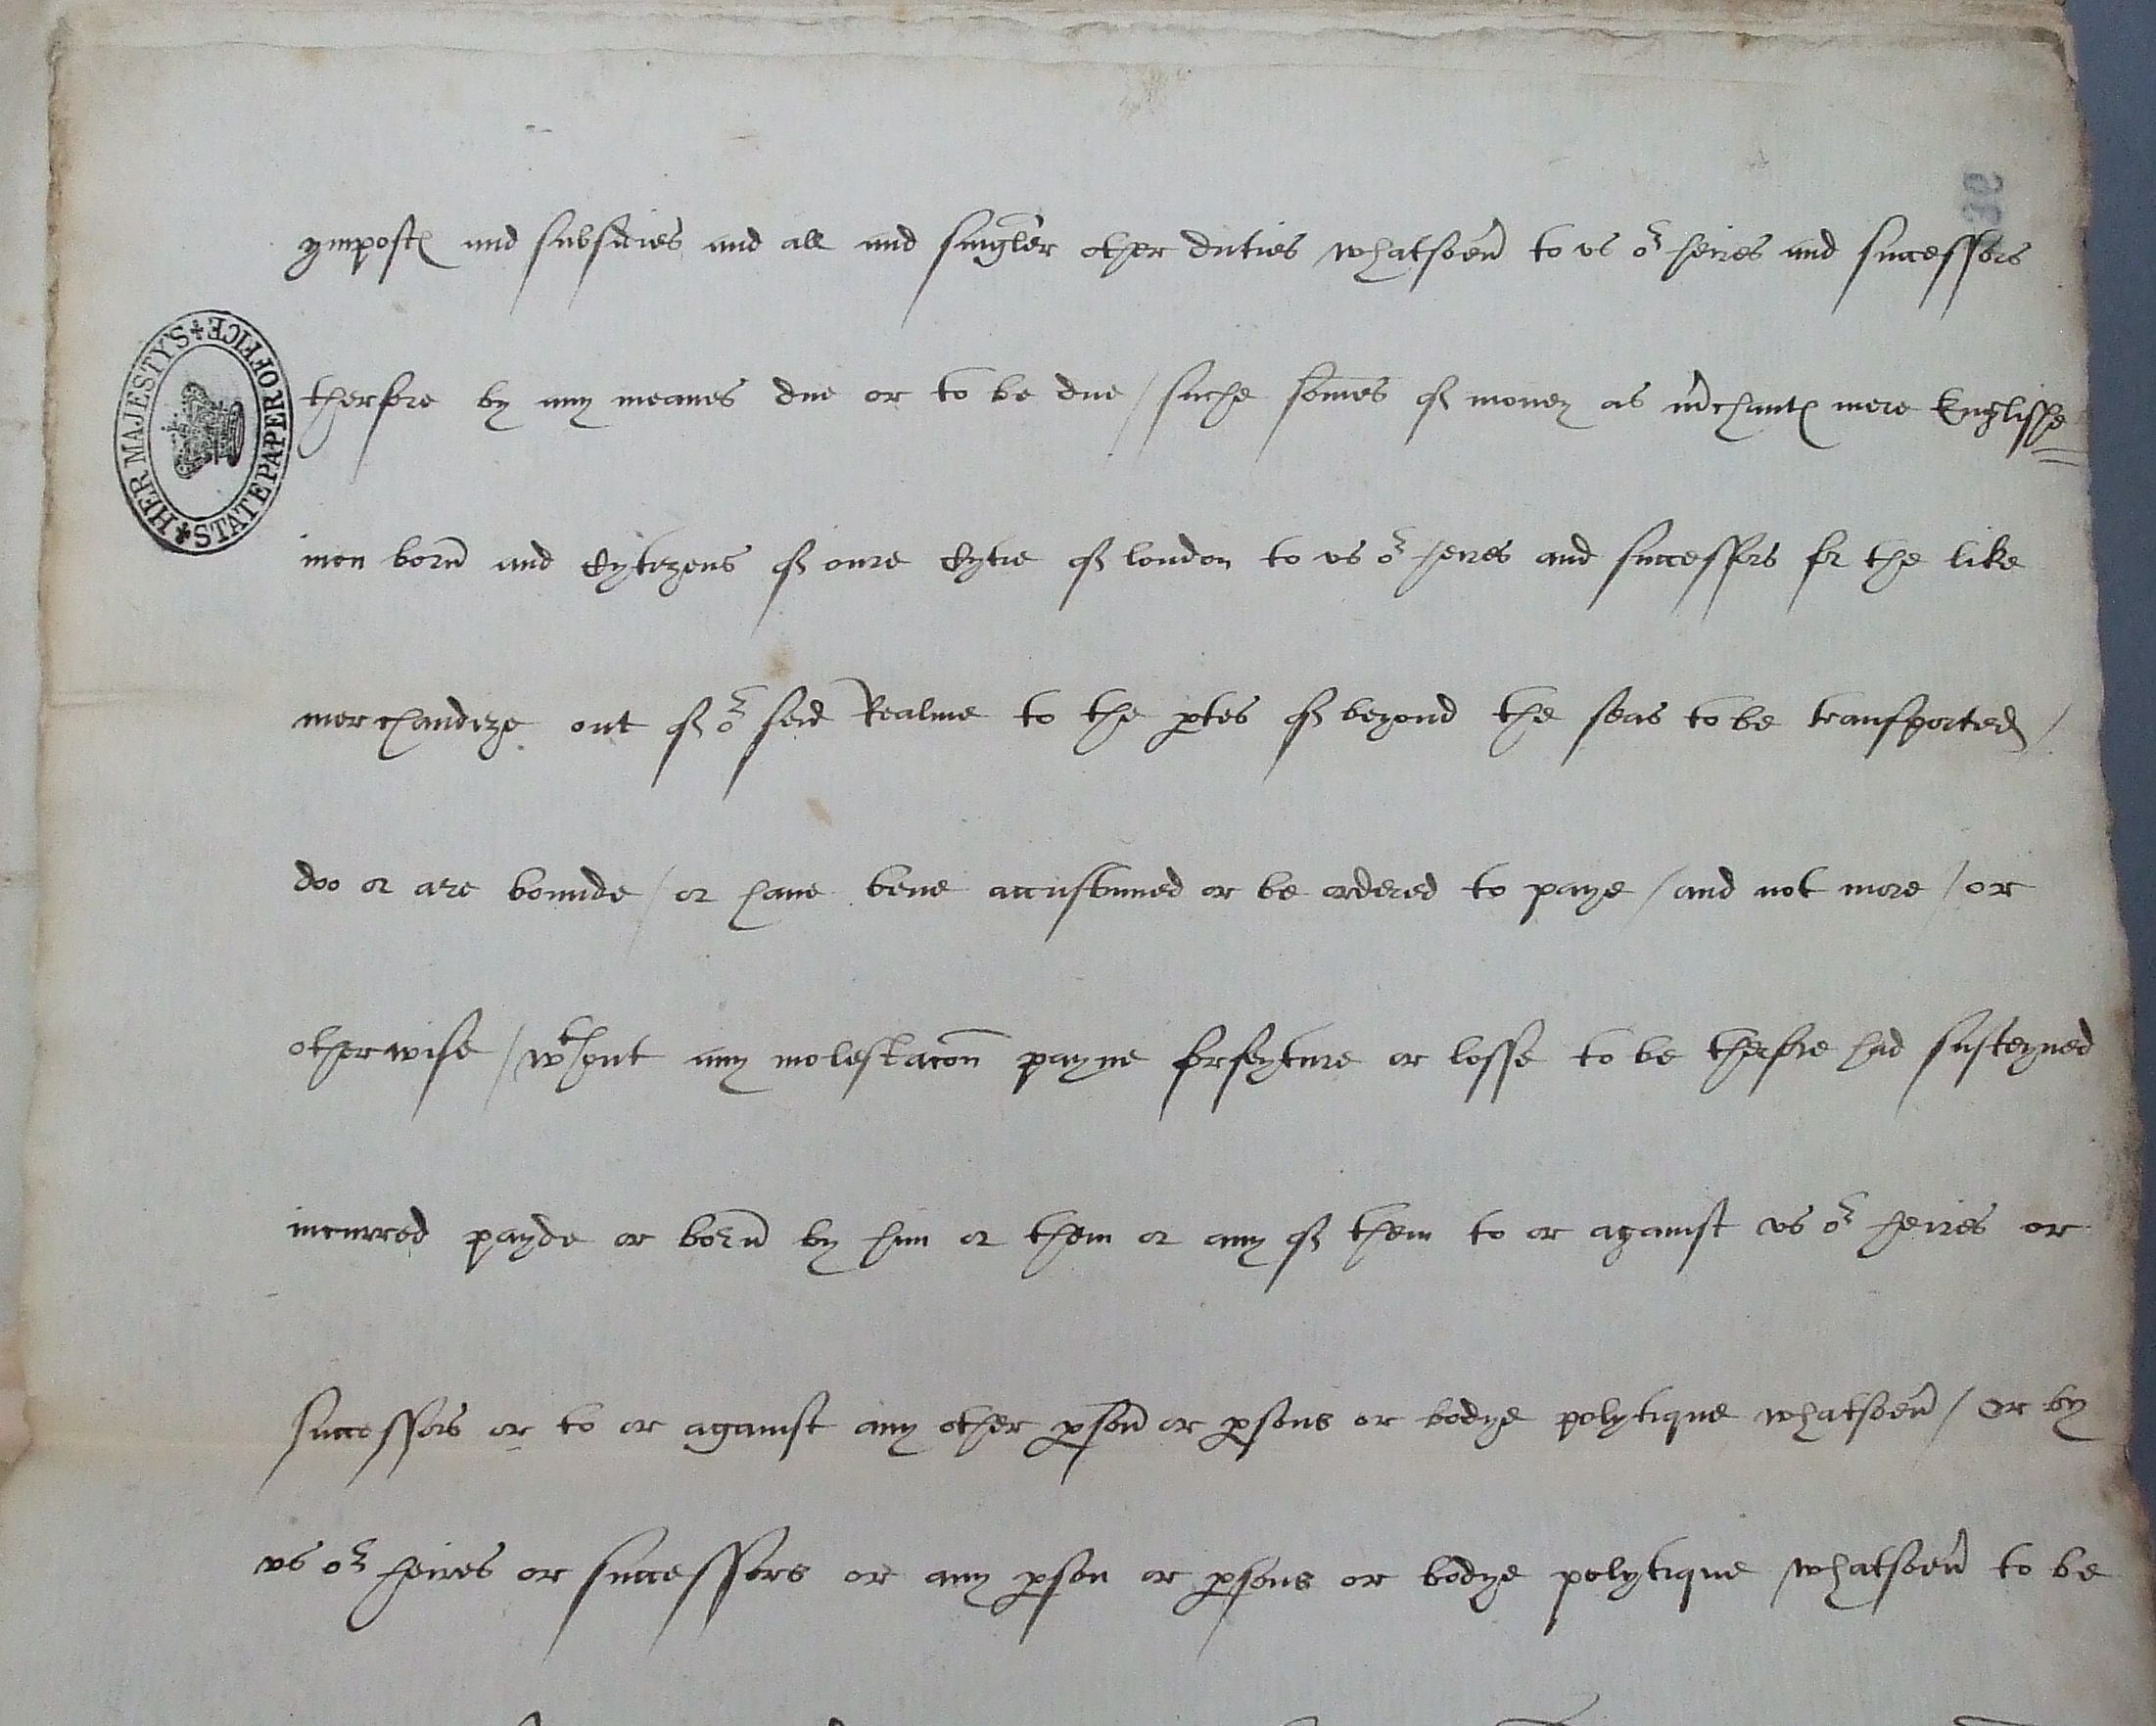 ympostꝭ and subsidies and all and singler other duties whatsoeu̇ to vs or heires and successors
therfore by any meanes due or to be due / suche somes of money as m̃chantꝭ mere Englisshe
HER MAJESTY'S STATE PAPER OFFICE
men born and Cytezens of oure Cytie of london to vs or heires and successors for the like
merchandize out of or seid Realme to the ꝑtes of beyond the seas to be transported /
doo or are bounde / or haue bene accustumed or be ordered to paye / and not more / or
otherwise / wthout any molestacon payne forfeyture or losse to be therfore had susteyned
incurred payde or born by him or them or any of them to or against vs or heires or
successors or to or against any other ꝑson or ꝑsons or bodye polytique whatsoeu̇ / Or by
vs or heires or successors or any ꝑson or ꝑsons or bodye polytique whatsoeu̇ to be